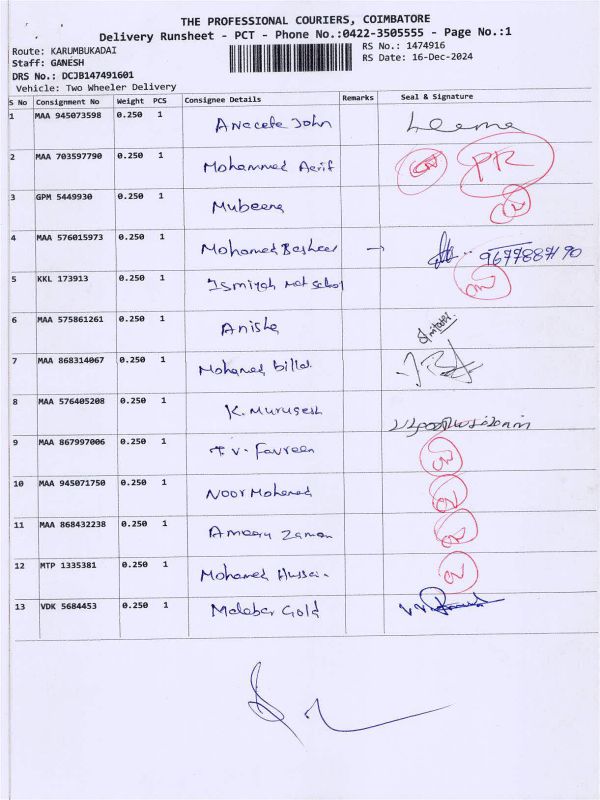 THE PROFESSIONAL COURIERS, COIMBATORE
Delivery Runsheet - PCT - Phone No.:0422-3505555 - Page No.:1
Route: KARUMBUKADAI
RS No.: 1474916
Staff: GANESH
RS Date: 16-Dec-2024
DRS No.: DCJB147491601
Vehicle: Two Wheeler Delivery
S No Consignment No Weight PCS Consignee Details Remarks Seal & Signature
1 MAA 945073598 0.250 1 Anecete John Leema
2 MAA 703597790 0.250 1 Mohammed Aerif PR
3 GPM 5449930 0.250 1 Mubeena
4 MAA 576015973 0.250 1 Mohamed Basheer → 9677887190
5 KKL 173913 0.250 1 Ismiyah Mat School
6 MAA 575861261 0.250 1 Anisha
7 MAA 868314067 0.250 1 Mohamed billal
8 MAA 576405208 0.250 1 K. Murugesh
9 MAA 867997006 0.250 1 T. V. Favreen
10 MAA 945071750 0.250 1 Noor Mohamed
11 MAA 868432238 0.250 1 Zaman
12 MTP 1335381 0.250 1 Mohamed Hussain
13 VDK 5684453 0.250 1 Malabar Gold